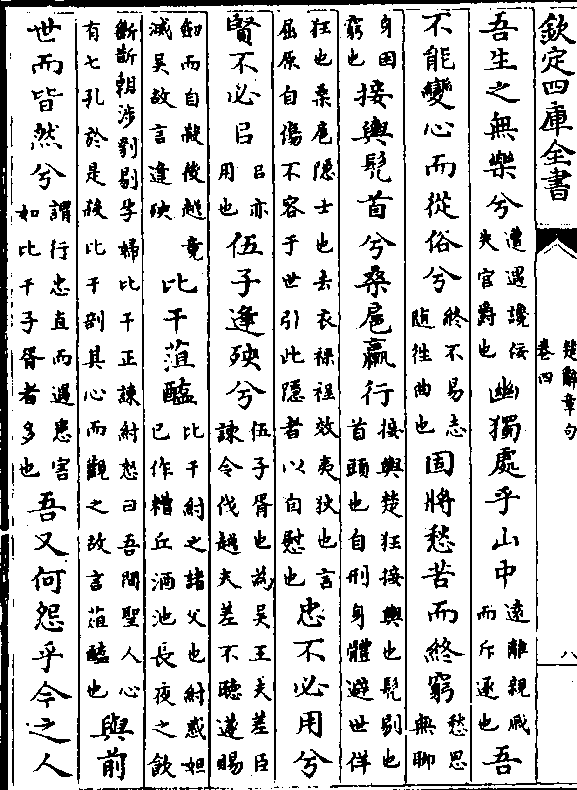 欽定四庫全書
楚辭章句
卷四
八
吾生之無樂兮遭遇讒佞失官爵也幽獨處乎山中遠離親戚而斥逐也吾
不能變心而從俗兮終不易志隨徃曲也固將愁苦而終窮愁思無聊
身困窮也接輿髠首兮桑扈臝行接輿楚狂接輿也髠剔也首頭也自刑身體避世佯
狂也桑扈隠士也去衣裸裎效夷狄也言屈原自傷不容于世引此隠者以自慰也忠不必用兮
賢不必㠯㠯亦用也伍子逢殃兮伍子胥也為吳王夫差臣諫令伐越夫差不聽遂賜
劒而自殺後越竟滅吳故言逢殃比干菹醢比干紂之諸父也紂惑妲己作糟丘酒池長夜之飲
斷斮朝涉刳剔孕婦比干正諫紂怒曰吾聞聖人心有七孔於是殺比干剖其心而觀之故言菹醢也與前
世而皆然兮謂行忠直而遇患害如比干子胥者多也吾又何怨乎今之人